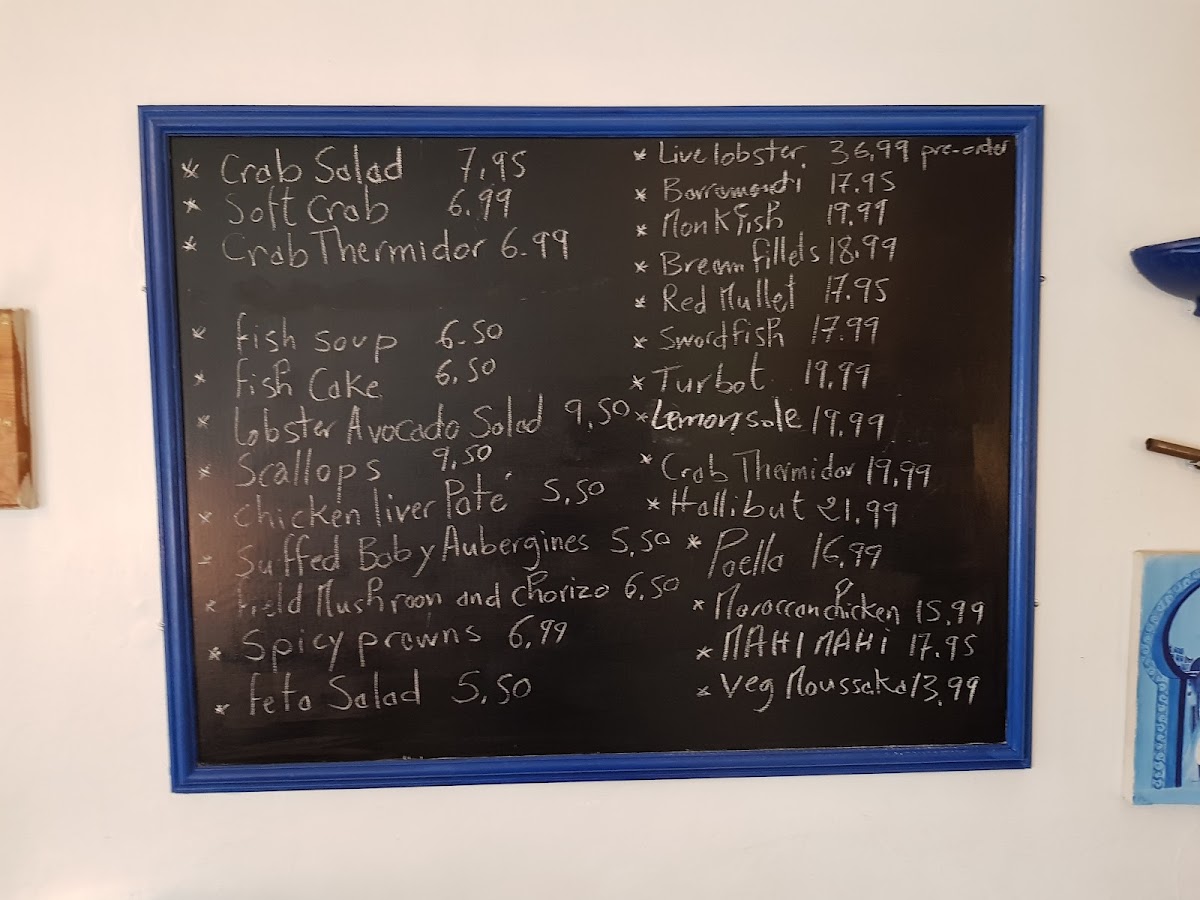 * Crab Salad 7,95
* Soft Crab 6.99
* Crab Thermidor 6-99
* fish soup 6-50
* fish Cake 6,50
* Lobster Avocado Salad 9,50
* Scallops 9,50
* Chicken liver Paté 5,50
* Suffed Baby Aubergines 5,50
* Field Mushroon and chorizo 6,50
* Spicy prawns 6,99
* feta Salad 5,50
* Live lobster. 36,99 pre-order
* Barramondi 17.95
* Monkfish 19.99
* Bream fillets 18,99
* Red Mullet 17.95
* Swordfish 17.99
* Turbot 19,99
* Lemon sole 19,99
* Crab Thermidor 19,99
* Hallibut 21.99
* Paella 16,99
* Moroccan chicken 15,99
* MAHI MAHi 17.95
* Veg Moussaka 13,99